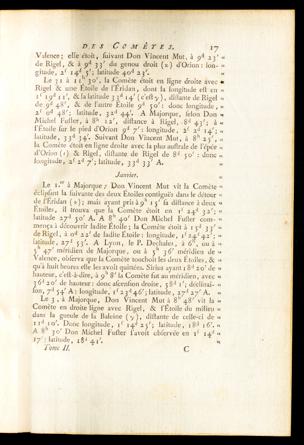 DES COMÈTES. 17
Valence; elle étoit, suivant Don Vincent Mut, à 9d 23′ «
de Rigel, & à 9d 33′ du genou droit (x) d'Orion: lon- «
gitude, 2f 14d 5′; latitude 40d 23′. «
Le 31 à 11h 30′, la Comète étoit en ligne droite avec «
Rigel & une Étoile de l'Éridan, dont la longitude est en «
1f 19d 11′, & sa latitude 33d 14′ (c'est γ), distante de Rigel «
de 9d 48′, & de l'autre Étoile 9d 50′: donc longitude, «
2f 0d 48′; latitude, 32d 44′. A Majorque, selon Don «
Michel Fuster, à 8h 12′, distance à Rigel, 8d 43′; à «
l'Étoile sur le pied d'Orion 9d 7′: longitude, 2f 2d 14′; «
latitude, 33d 34′. Suivant Don Vincent Mut, à 8h 25′, «
la Comète étoit en ligne droite avec la plus australe de l'épée «
d'Orion (ι) & Rigel, distante de Rigel de 8d 50′: donc «
longitude, 2f 2d 7′; latitude, 33d 33′ A.
Janvier.
Le 1.er à Majorque; Don Vincent Mut vit la Comète «
éclipsant la suivante des deux Étoiles contiguës dans le détour «
de l'Éridan; mais ayant pris à 9h 15′ sa distance à deux «
Étoiles, il trouva que la Comète étoit en 1f 24d 32′; «
latitude 27d 50′ A. A 8h 40′ Don Michel Fuster com- «
mença à découvrir ladite Étoile; la Comète étoit à 15d 33′ «
de Rigel, à 0d 22′ de ladite Étoile: longitude, 1f 24d 42′; «
latitude, 27d 53′. A Lyon, le P. Dechales, à 6h, ou à «
5h 47′ méridien de Majorque, ou à 5h 36′ méridien de «
Valence, observa que la Comète touchoit les deux Étoiles, & «
qu'à huit heures elle les avoit quittées. Sirius ayant 18d 20′ de «
hauteur, c'est-à-dire, à 9h 8′ la Comète fut au méridien, avec «
36d 20′ de hauteur: donc ascension droite, 58d 1′; déclinai- «
son, 7d 54′ A: longitude, 1f 23d 46′; latitude, 27d 27′ A. «
Le 3, à Majorque, Don Vincent Mut à 8h 48′ vit la «
Comète en droite ligne avec Rigel, & l'Étoile du milieu «
dans la gueule de la Baleine (γ), distante de celle-ci de «
11d 10′. Donc longitude, 1f 14d 23′; latitude, 18d 16′. «
A 8h 30′ Don Michel Fuster l'avoit observée en 1f 14d «
17′; latitude, 18d 41′. «
Tome II. C